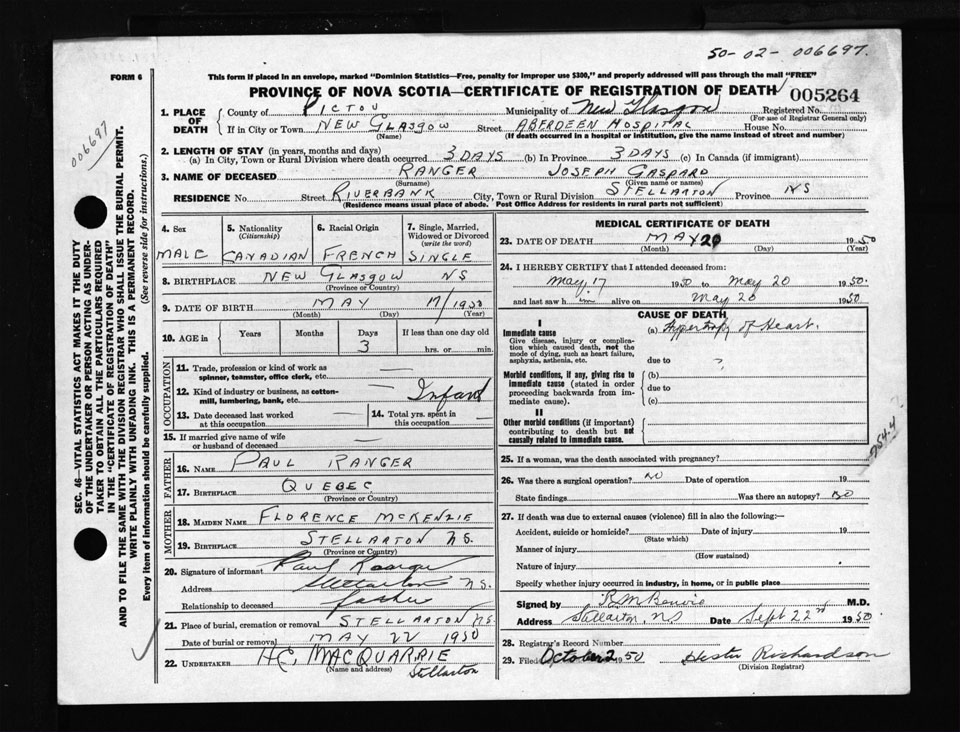 50-02-006697.
FORM 6
This form if placed in an envelope, marked "Dominion Statistics—Free, penalty for improper use $300," and properly addressed will pass through the mail "FREE"
PROVINCE OF NOVA SCOTIA—CERTIFICATE OF REGISTRATION OF DEATH
005264
006697
1. PLACE OF DEATH
County of PICTOU Municipality of New Glasgow Registered No.
(For use of Registrar General only)
If in City or Town NEW GLASGOW Street ABERDEEN HOSPITAL House No.
(Name) (If death occurred in a hospital or institution, give the name instead of street and number)
2. LENGTH OF STAY (in years, months and days)
(a) In City, Town or Rural Division where death occurred 3 DAYS (b) In Province 3 DAYS (c) In Canada (if immigrant)
3. NAME OF DECEASED RANGER JOSEPH GASPARD
(Surname) (Given name or names)
RESIDENCE No. Street RIVERBANK City, Town or Rural Division STELLARTON Province NS
(Residence means usual place of abode. Post Office Address for residents in rural parts not sufficient)
4. Sex
MALE
5. Nationality
(Citizenship)
CANADIAN
6. Racial Origin
FRENCH
7. Single, Married, Widowed or Divorced
(write the word)
SINGLE
8. BIRTHPLACE NEW GLASGOW NS
(Province or Country)
9. DATE OF BIRTH MAY 17/1950
(Month) (Day) (Year)
10. AGE in
Years Months Days If less than one day old
3 hrs. or min.
OCCUPATION
11. Trade, profession or kind of work as
spinner, teamster, office clerk, etc. —
12. Kind of industry or business, as cotton-
mill, lumbering, bank, etc. Infant
13. Date deceased last worked
at this occupation —
14. Total yrs. spent in
this occupation —
15. If married give name of wife
or husband of deceased —
FATHER
16. NAME PAUL RANGER
17. BIRTHPLACE QUEBEC
(Province or Country)
MOTHER
18. MAIDEN NAME FLORENCE MCKENZIE
19. BIRTHPLACE STELLARTON NS.
(Province or Country)
20. Signature of informant Paul
Address Stellarton NS.
Relationship to deceased father
21. Place of burial, cremation or removal STELLARTON NS.
Date of burial or removal MAY 22 1950
22. UNDERTAKER H.C. MACQUARRIE
(Name and address)
Stellarton
MEDICAL CERTIFICATE OF DEATH
23. DATE OF DEATH MAY 20 1950
(Month) (Day) (Year)
24. I HEREBY CERTIFY that I attended deceased from:
May 17 1950 to May 20 1950.
and last saw him alive on May 20 1950
CAUSE OF DEATH
I
Immediate cause
Give disease, injury or complica-
tion which caused death, not the
mode of dying, such as heart failure,
asphyxia, asthenia, etc.
(a) Hypertrophy of Heart.
due to ?
Morbid conditions, if any, giving rise to
immediate cause (stated in order
proceeding backwards from im-
mediate cause).
(b)
due to
(c)
II
Other morbid conditions (if important)
contributing to death but not
causally related to immediate cause.
754.4
25. If a woman, was the death associated with pregnancy?
26. Was there a surgical operation? No Date of operation 19
State findings Was there an autopsy? No
27. If death was due to external causes (violence) fill in also the following:—
Accident, suicide or homicide? Date of injury 19
(State which)
Manner of injury
(How sustained)
Nature of injury
Specify whether injury occurred in industry, in home, or in public place
Signed by M.D.
Address Stellarton, NS Date Sept 22nd 1950
28. Registrar's Record Number
29. Filed October 2 1950 Hester Richardson
(Division Registrar)
SEC. 46—VITAL STATISTICS ACT MAKES IT THE DUTY
OF THE UNDERTAKER OR PERSON ACTING AS UNDER-
TAKER TO OBTAIN ALL THE PARTICULARS REQUIRED
IN THE "CERTIFICATE OF REGISTRATION OF DEATH"
AND TO FILE THE SAME WITH THE DIVISION REGISTRAR WHO SHALL ISSUE THE BURIAL PERMIT.
WRITE PLAINLY WITH UNFADING INK. THIS IS A PERMANENT RECORD.
Every item of information should be carefully supplied. (See reverse side for instructions.)